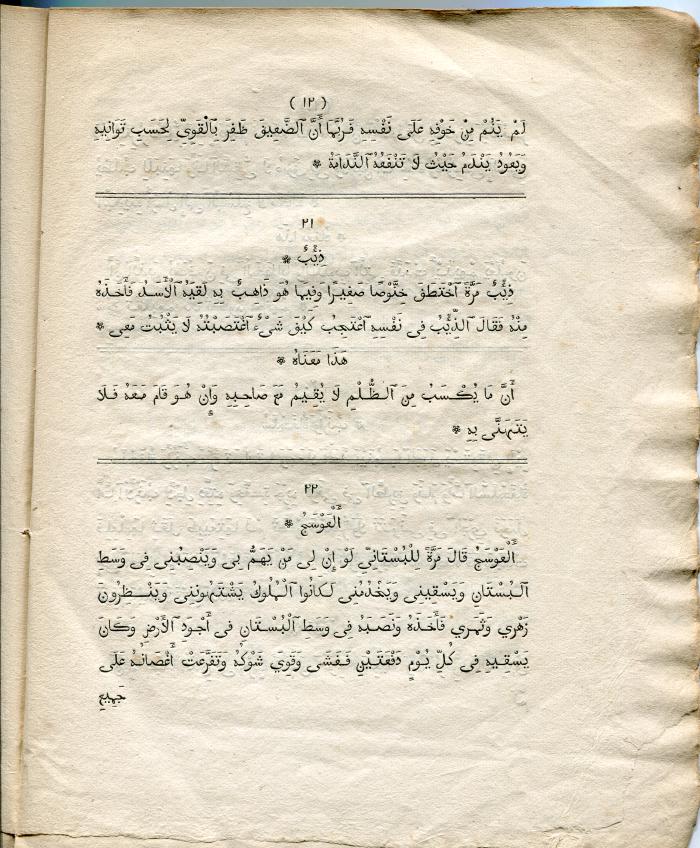 ( ١٢ )
لَمْ يَنُمْ مِنْ خَوْفِهِ عَلَى نَفْسِهِ فَرُبَّمَا أَنَّ ٱلضَّعِيفَ ظَفِرَ بِٱلْقَوِيِّ لِحَسَبِ تَوَانِيهِ
وَيَعُودُ يَنْدَمُ حَيْثُ لَا تَنْفَعُهُ ٱلنَّدَامَةُ *
٢١
ذِئْبٌ *
ذِئْبٌ مَرَّةً ٱخْتَطَفَ خِنَّوْصًا صَغِيرًا وَفِيمَا هُوَ ذَاهِبٌ بِهِ لَقِيَهُ ٱلْأَسَدُ فَأَخَذَهُ
مِنْهُ فَقَالَ ٱلذِّئْبُ فِى نَفْسِهِ ٱعْتَجِبُ كَيْفَ شَىْءٌ ٱغْتَصَبْتُهُ لَا يَثْبُتُ مَعِى *
هَذَا مَعْنَاهُ *
أَنَّ مَا يُكْسَبُ مِنَ ٱلظُّلْمِ لَا يُقِيمُ مَعَ صَاحِبِهِ وَإِنْ هُوَ قَامَ مَعَهُ فَلَا
يَتَهَنَّى بِهِ *
٢٢
أَلْعَوْسَجُ *
أَلْعَوْسَجُ قَالَ مَرَّةً لِلْبُسْتَانِيِّ لَوْ إِنْ لِى مَنْ يَهَمُّ بِى وَيَنْصُبُنِى فِى وَسَطِ
ٱلْبُسْتَانِ وَيَسْقِينِى وَيَخْدُمُنِى لَكَانُوا ٱلْمُلُوكُ يَشْتَهُونَنِى وَيَنْظُرُونَ
زَهْرِي وَثَمَرِي فَأَخَذَهُ وَنَصَبَهُ فِى وَسَطِ ٱلْبُسْتَانِ فِى أَجْوَدِ ٱلْأَرْضِ وَكَانَ
يَسْقِيهِ فِى كُلِّ يُوْمٍ دَفْعَتَيْنِ فَفَشَى وَقَوِيَ شَوْكُهُ وَتَفَرَّعَتْ أَغْصَانُهُ عَلَى
جَمِيعِ